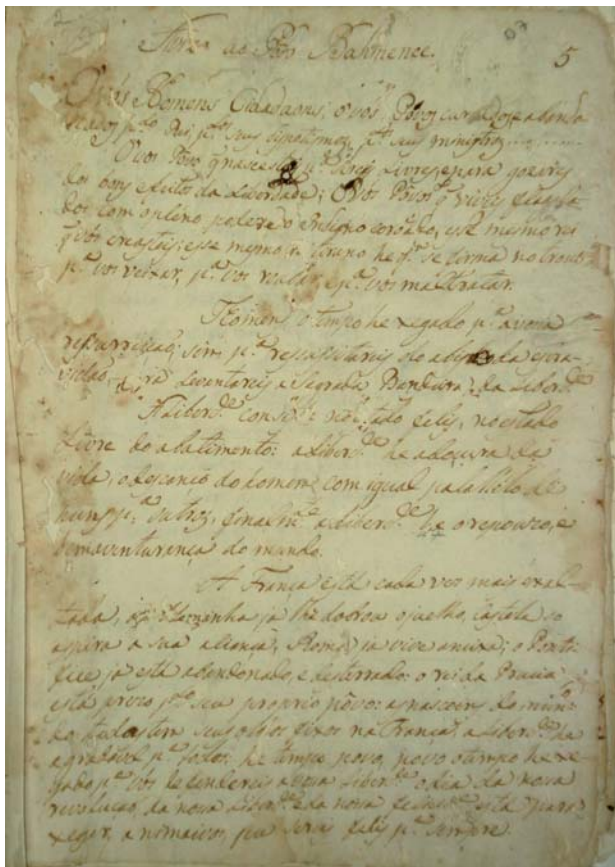 5
Aviso ao Povo Bahinence.
O vós Homens Cidadaons; ó vós Povos curvados, e abando
nados p.lo Rei, p.los seus despotismos, p.los seus ministros
O vos Povo q nascesteis p.a sereis Livres, e para gozareis
dos bons efeitos da Liberdade; O vos Povos q viveis flagela
dos com o pleno poder do indigno coroado, esse mesmo rei
q vós creasteis; esse mesmo rei tirano he q.m se firma no trono
p.a vos veixar, p.a vos roubar e p.a vos maltratar.
Homens o tempo he xegado p.a a vossa
ressurreiçaõ; sim p.a ressuscitareis do abismo da escra
vidaõ, p.a levantareis a Sagrada Bandeira da Liberd.e
A Liberd.e consiste no estado felis, no estado
Livre do abatimento: a Liberd.e he a doçura da
vida, o descanço do homem com igual paralello de
huns p.a outros, finalm.te a Liberd.e he o repouzo, e
bemaventurança do mundo.
A França está cada vez mais exal
tada, a Alemanha ja lhe dobrou o juelho, Castela so
aspira a sua aliança, Roma ja vive anexa; o Ponti
fice ja está abandonado, e desterrado: o rei da Prucia
está prezo p.lo seu proprio povo: as nasçoens do mun
do todas tem seus olhos fixos na França, a Liberd.e he
agradavel p.a todos: he tempo povo, povo o tempo he xe
gado p.a vós defendereis a vossa Liberd.e o dia da nossa
revoluçaõ, da nossa Liberd.e e da nossa felicid.e está para
xegar, animaivos, que sereis felis p.a sempre.